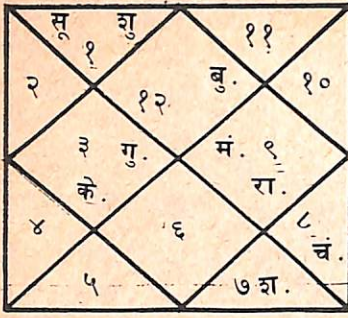 सू शु
१
११
२
१२
बु.
१०
३ गु.
के.
मं. ९
रा.
४
६
८
चं.
५
७ श.